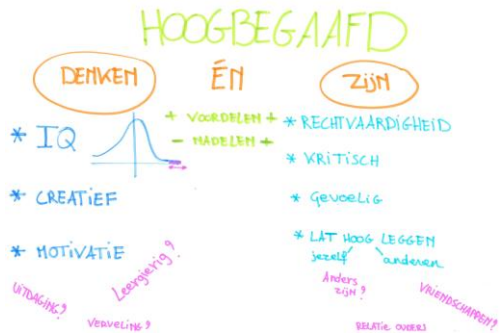 HOOGBEGAAFD
DENKEN ÉN ZIJN
+ VOORDELEN +
- NADELEN +
* IQ
* CREATIEF
* MOTIVATIE
* RECHTVAARDIGHEID
* KRITISCH
* GEVOELIG
* LAT HOOG LEGGEN
jezelf anderen
UITDAGING?
Leergierig?
VERVELING?
Anders zijn?
VRIENDSCHAPPEN?
RELATIE OUDERS